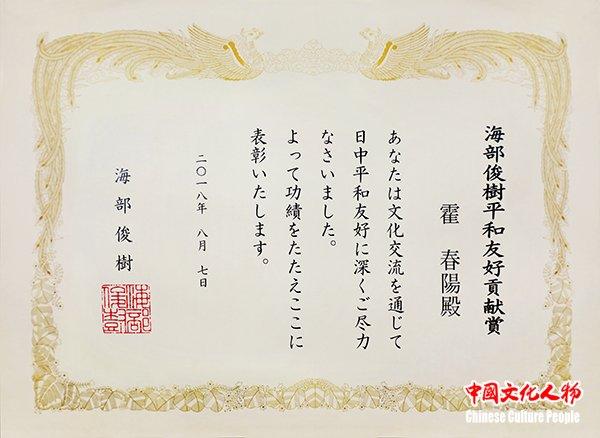 海部俊樹平和友好貢献賞
霍　春陽殿
あなたは文化交流を通じて
日中平和友好に深くご尽力
なさいました。
よって功績をたたえここに
表彰いたします。
二〇一八年　八月　七日
海部俊樹
中國文化人物
Chinese Culture People